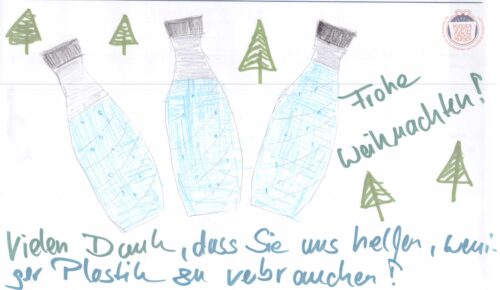 Frohe
Weihnachten!
Vielen Dank, dass Sie uns helfen, weni-
ger Plastik zu verbrauchen!